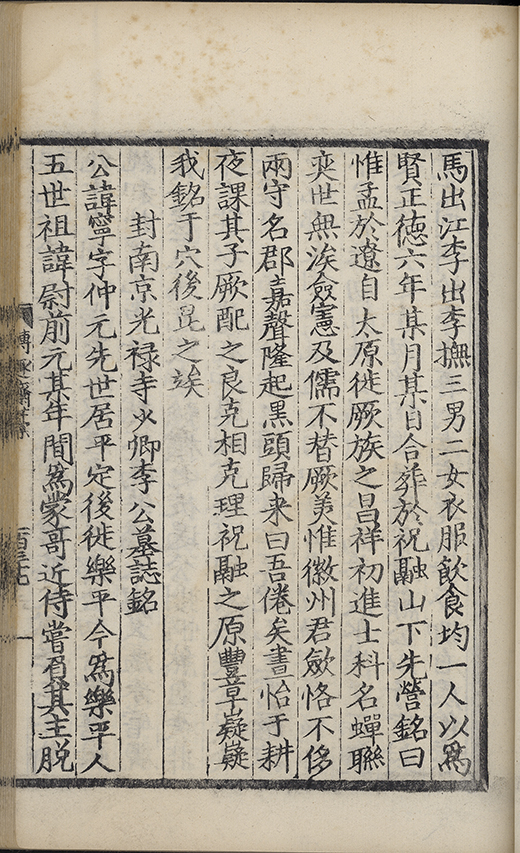 馬出江李出李撫三男二女衣服飲食均一人以爲
賢正徳六年某月某日合葬於祝融山下先營銘曰
惟孟於遼自太原徙厥族之昌祥初進士科名蟬聯
奕世無涘僉憲及儒不替厥美惟徽州君歛恪不侈
兩守名郡嘉聲隆起黒頭歸来曰吾倦矣晝怡于耕
夜課其子厥配之良克相克理祝融之原豐草嶷嶷
我銘于穴後昆之竢
封南京光禄寺少卿李公墓誌銘
公諱寧字仲元先世居平定後徙樂平今爲樂平人
五世祖諱尉前元某年間爲蒙哥近侍嘗肩其主脱